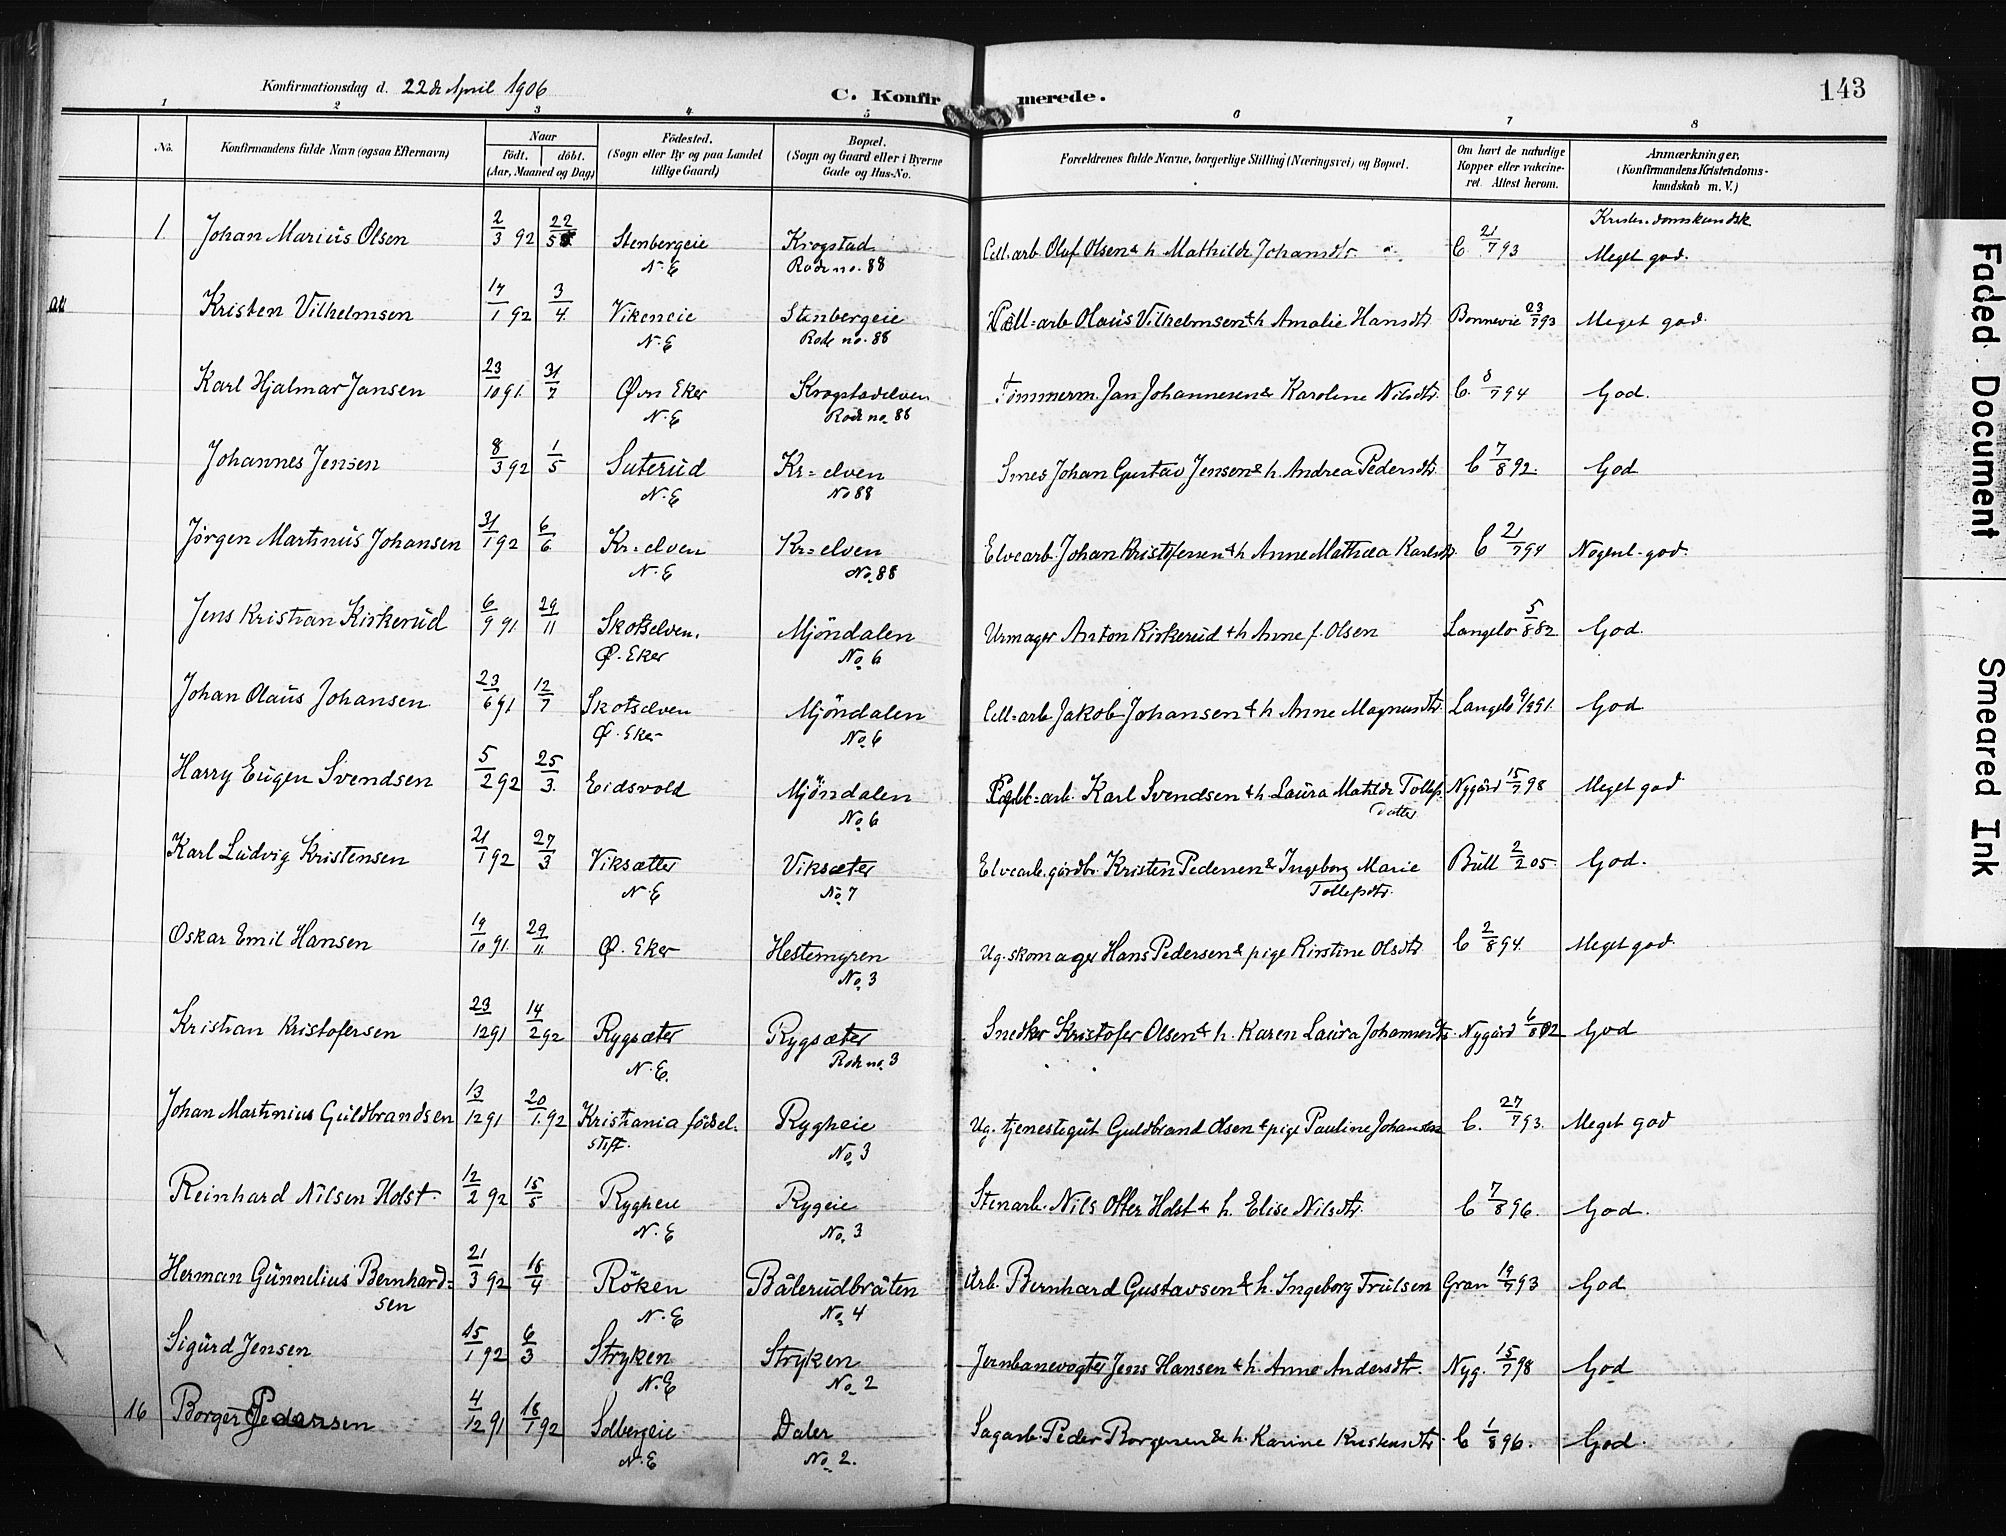 Konfirmationsdag d. 22de April 1906
C. Konfirmerede.
143
1 2 3 4 5 6 7 8
No.
Konfirmandens fulde Navn (ogsaa Efternavn)
Naar
födt. döbt.
(Aar, Maaned og Dag)
Födested.
(Sogn eller By og paa Landet
tillige Gaard)
Bopæl.
(Sogn og Gaard eller i Byerne
Gade og Hus-No.
Forældrenes fulde Navne, borgerlige Stilling (Næringsvei) og Bopæl.
Om havt de naturlige
Kopper eller vakcine-
ret. Attest herom.
Anmærkninger.
(Konfirmandens Kristendoms-
kundskab m. V.)
Kristendomskundsk
1 Johan Marius Olsen 2/3 92 22/5 Stenbergeie Krogstad Cell. arb. Oluf Olsen & h Mathilde Johansdtr C. 21/7 93 Meget god.
N. E Rode no. 88
Kristen Vilhelmsen 17/1 92 3/4 Vikeneie Stenbergeie Cell=arb Olaus Vilhelmsen & h Amalie Hansdtr Bonnevie 23/7 93 Meget god.
N. E Rode no. 88
Karl Hjalmar Jansen 23/10 91. 31/7 Øvn Eker Krogstadelven Tømmerm. Jan Johannesen & Karoline Nilsdtr. C. 8/7 94 God.
N. E Rode no. 88
Johannes Jensen 8/3 92 1/5 Suterud Kr=elven Smed Johan Gustav Jensen & h. Andrea Pedersdtr. C 7/8 92. God
N. E No 88
Jörgen Martinus Johansen 31/1 92 6/6 Kr=elven Kr=elven Elvearb. Johan Kristofersen & h Anne Mathea Karlsdtr. C 21/7 94 Nogenl. god.
N. E No. 88
Jens Kristian Kirkerud 6/9 91 29/11 Skotselven. Mjöndalen Urmager Anton Kirkerud & h Anne f. Olsen Langelo 5/8 82 God.
Ø. Eker No. 6
Johan Olaus Johansen 23/6 91 12/7 Skotselven Mjöndalen Cell=arb Jakob Johansen & h Anne Magnusdtr. Langelo 9/9 91. God
Ø. Eker No. 6
Harry Eugen Svendsen 5/2 92 25/3. Eidsvold Mjöndalen Cell=arb. Karl Svendsen & h Laura Matilde Tollefs Nygård 15/7 98 Meget god
No. 6 datter
Karl Ludvig Kristensen 21/1 92 27/3 Viksætter Viksæter Elvearb. gårdbr. Kristen Pedersen & Ingeborg Marie Bull 2/2 05. God.
N. E No. 7 Tollefsdtr.
Oskar Emil Hansen 19/10 91. 29/11 Ø. Eker Hestemyren Ug. skomager Hans Pedersen & pige Kirstine Olsdtr C 2/8 94. Meget god.
No. 3
Kristian Kristofersen 23/12 91 14/2 92 Rygsæter Rygsæter Snedker Kristofer Olsen & h. Karen Laura Johannesdtr. Nygård 6/8 02 God
N. E. Rode no. 3
Johan Martinius Guldbrandsen 13/12 91 20/1. 92 Kristiania födsel. Rygheie Ug. tjenestegut Guldbrand Olsen & pige Pauline Johansen C. 27/7 93. Meget god
stift. No. 3
Reinhard Nilsen Holst. 12/2 92 15/5 Rygheie Rygeie Stenarb. Nils Otter Holst & h. Elise Nilsdtr. C 7/8 96. God.
N. E No. 3
Herman Gunnelius Bernhard= 21/3 92 18/4 Röken Bålerudbråten Arb. Bernhard Gustavsen & h. Ingeborg Trulsen Gran 19/7 93 God
sen N. E No. 4
Sigurd Jensen 15/1 92 6/3 Stryken Stryken Jernbanevogter Jens Hansen & h. Anne Andersdtr. Nyg. 15/7 98 God
N. E No. 2
16 Borger Pedersen 4/12 91 18/1 92 Solbergeie Daler Sagarb. Peder Borgersen & h. Karine Kristensdtr. C 1/8 96. God.
N. E No. 2.
Faded Document
Smeared Ink